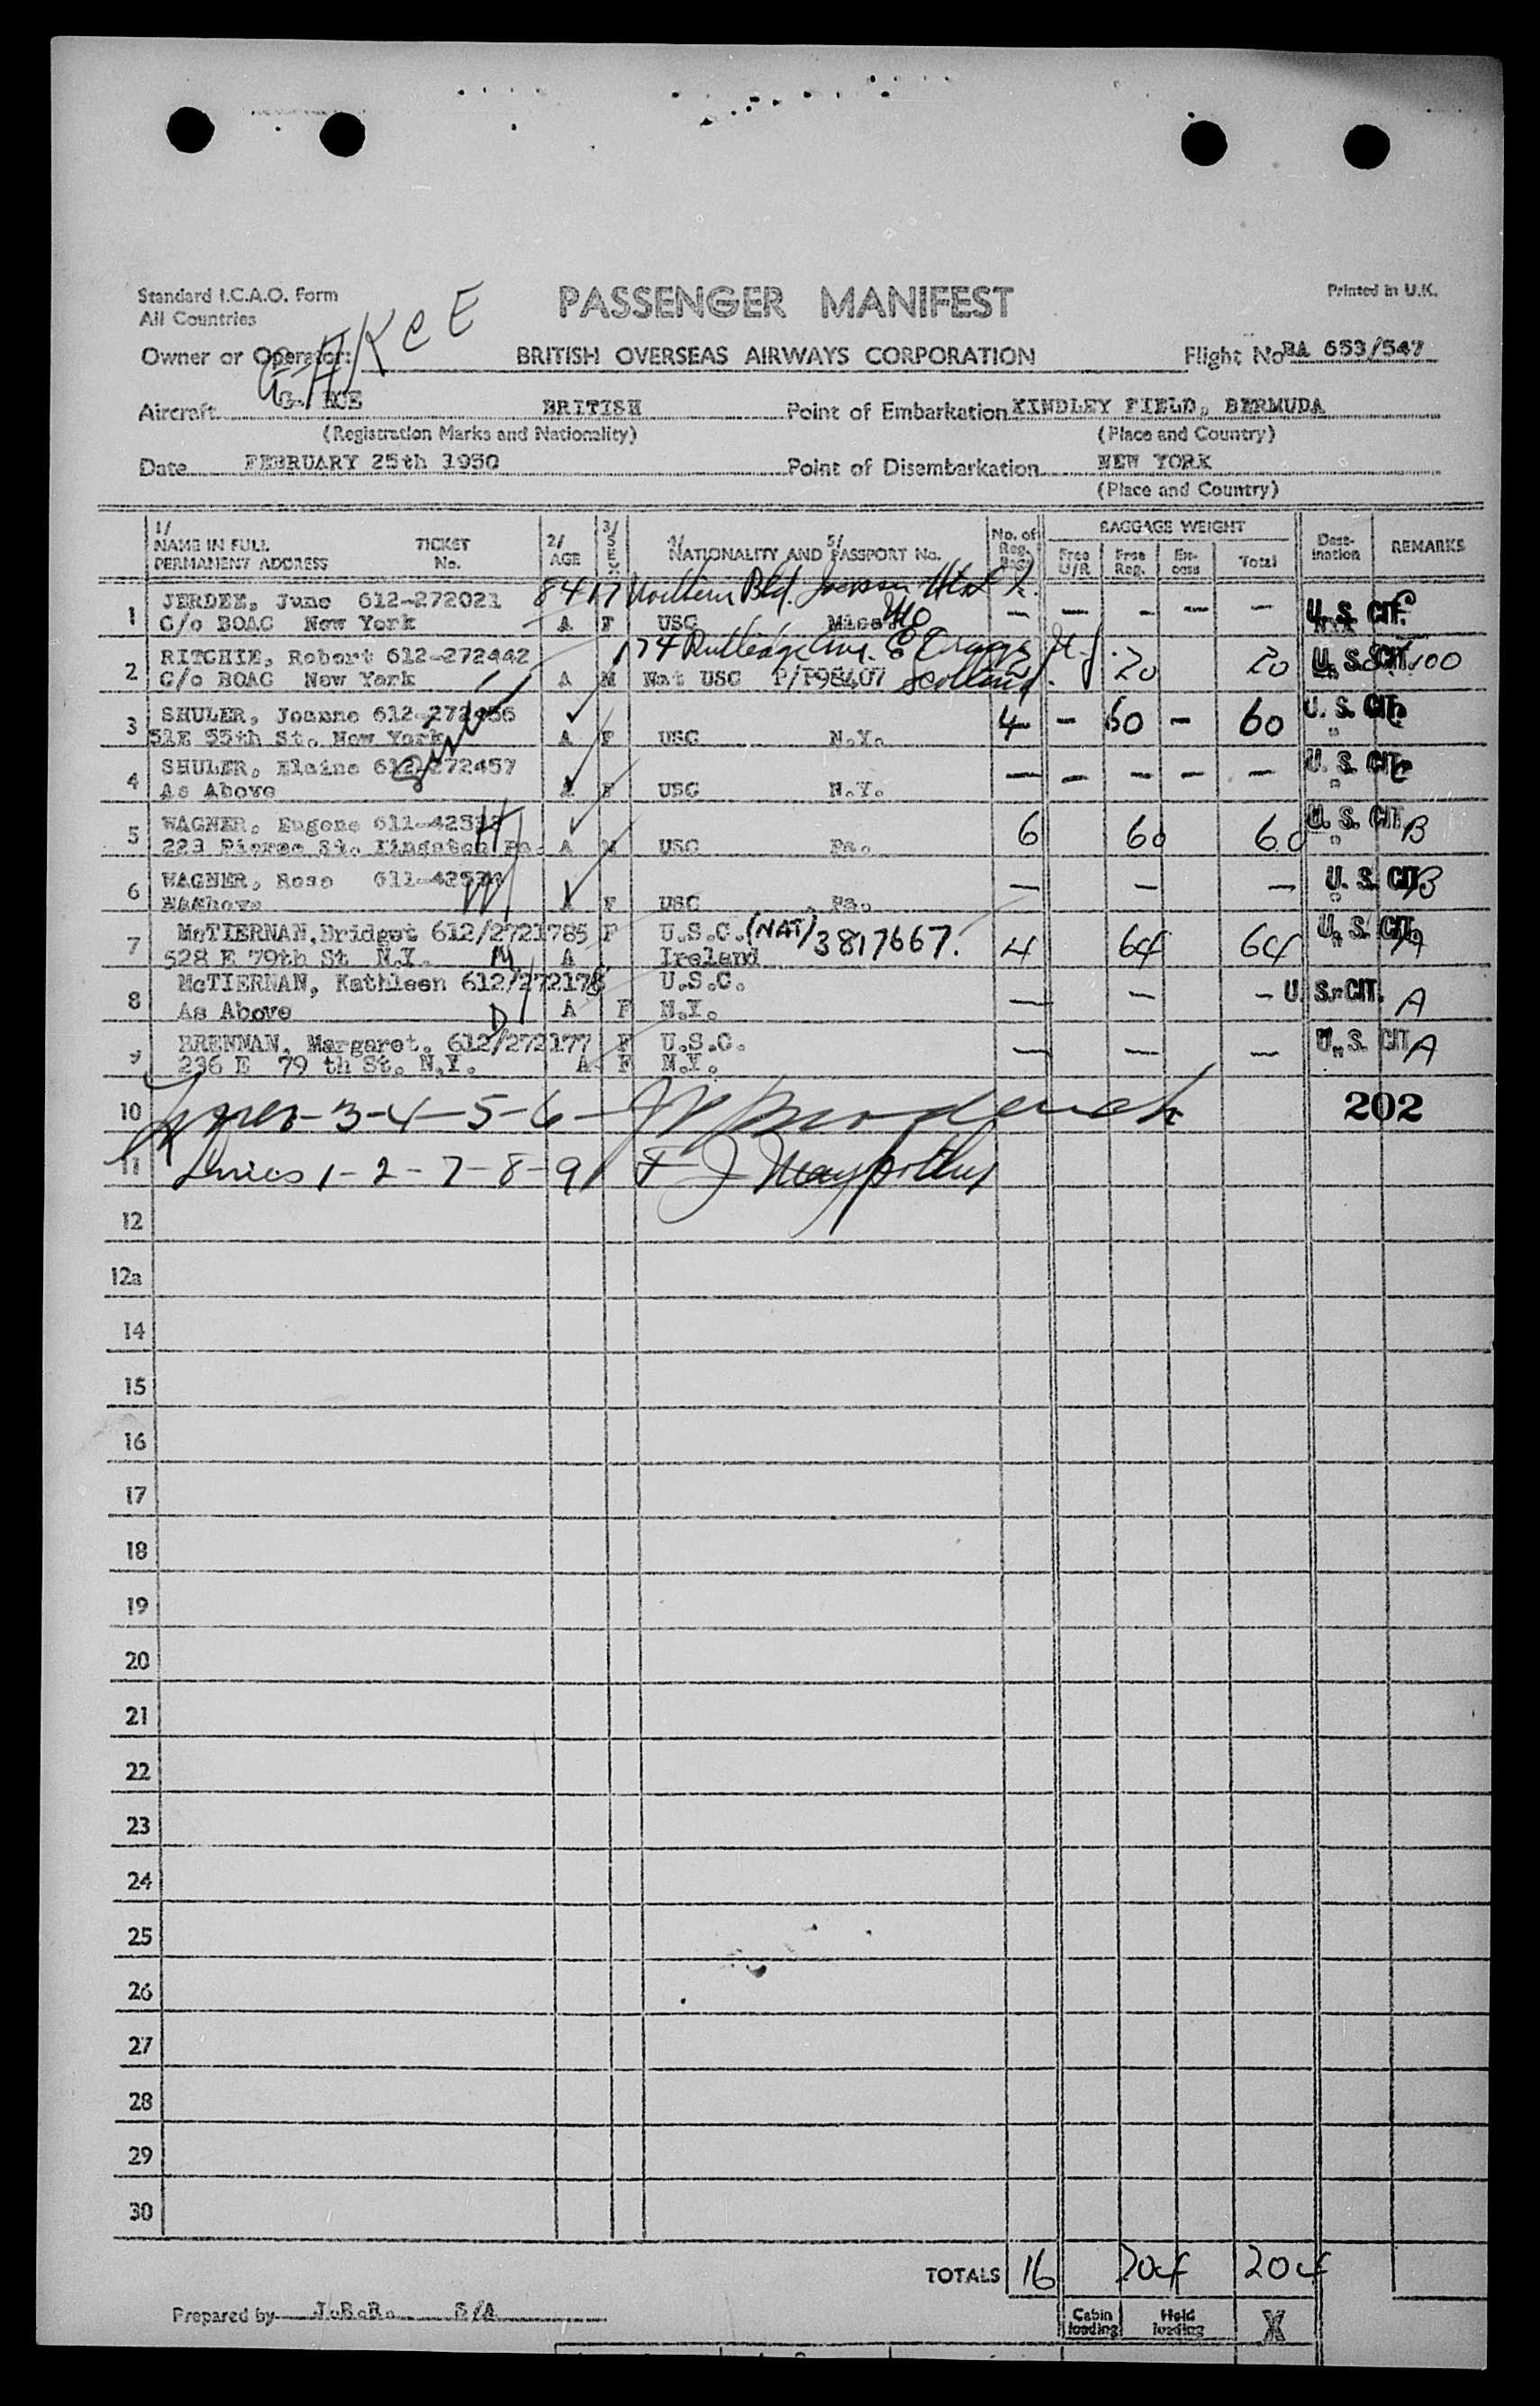 Standard I.C.A.O. Form
All Countries
PASSENGER MANIFEST
Printed in U.K.
G AKCE
Owner or Operator: BRITISH OVERSEAS AIRWAYS CORPORATION Flight No BA 653/547
Aircraft G- KCE BRITISH Point of Embarkation KINDLEY FIELD, BERMUDA
(Registration Marks and Nationality) (Place and Country)
Date FEBRUARY 25th 1950 Point of Disembarkation NEW YORK
(Place and Country)
1/ NAME IN FULL PERMANENT ADDRESS TICKET No. 2/ AGE 3/ SEX 4/ NATIONALITY AND 5/ PASSPORT No. No. of Reg. Bags BAGGAGE WEIGHT Free U/R Free Reg. Ex-cess Total Dest-ination REMARKS
8417
1 JERDEE, June 612-272021
C/o BOAC New York A F USC Miss Mo — — — — — U. S. CIT. C
174 Rutledge Ave. E Orange N.J.
2 RITCHIE, Robert 612-272442
C/o BOAC New York A M Nat USC P/P98407 Scotland. 20 20 U. S. CIT.
3 SHULER, Joanne 612-272456 4 - 60 - 60 U. S. CIT. C
51E 55th St. New York A F USC N.Y. "
4 SHULER, Elaine 612-272457 — — — — — U. S. CIT. C
As Above A F USC N.Y. "
5 WAGNER, Eugene 611-42533 6 60 60 U. S. CIT. B
223 Pierce St. Kingston Pa. A M USC Pa. "
6 WAGNER, Rose 611-42534 — — — U. S. CIT. B
As Above A F USC Pa. "
7 McTIERNAN, Bridget 612/2721785 F U.S.C. (NAT) 3817667. 4 64 64 U. S. CIT. A
528 E 79th St N.Y. A Ireland
8 McTIERNAN, Kathleen 612/272178 U.S.C. — — — U. S. CIT. A
As Above A F N.Y.
9 BRENNAN, Margaret. 612/272177 F U.S.C. — — — U. S. CIT A
236 E 79 th St. N.Y. A F N.Y.
10 3-4-5-6- 202
11 Lines 1-2-7-8-9
12
12a
14
15
16
17
18
19
20
21
22
23
24
25
26
27
28
29
30
TOTALS 16 204 204
Prepared by J.R.R. S/A
Cabin loading Hold loading X